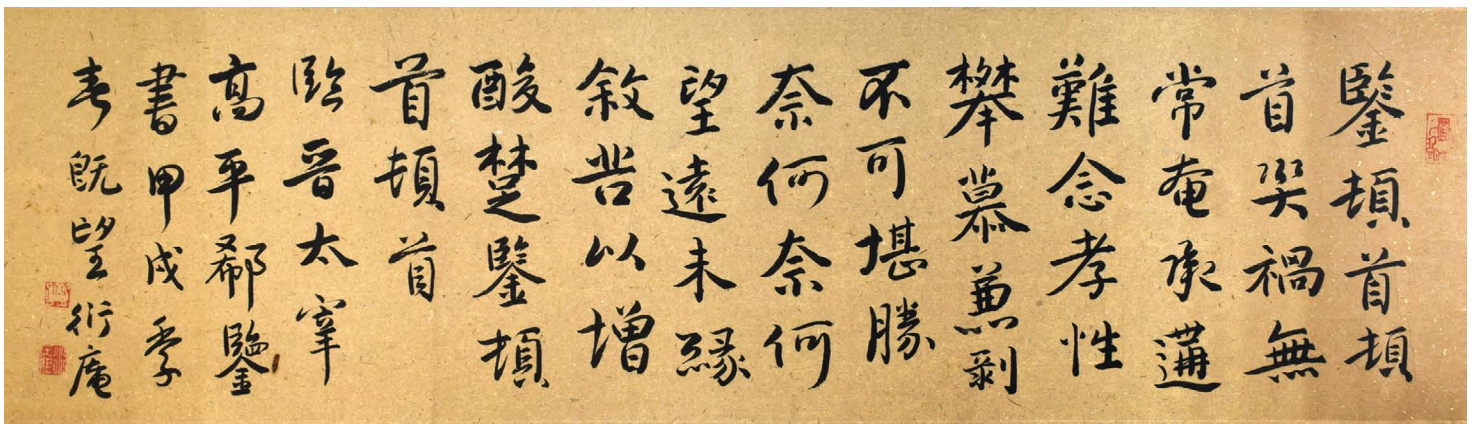 鑒頓首頓
首災禍無
常奄承遘
難念孝性
攀慕兼剥
不可堪勝
奈何奈何
望遠未緣
叙苦以增
酸楚鑒頓
首頓首
臨晉太宰
高平郗鑒
書甲戌季
春既望衍庵